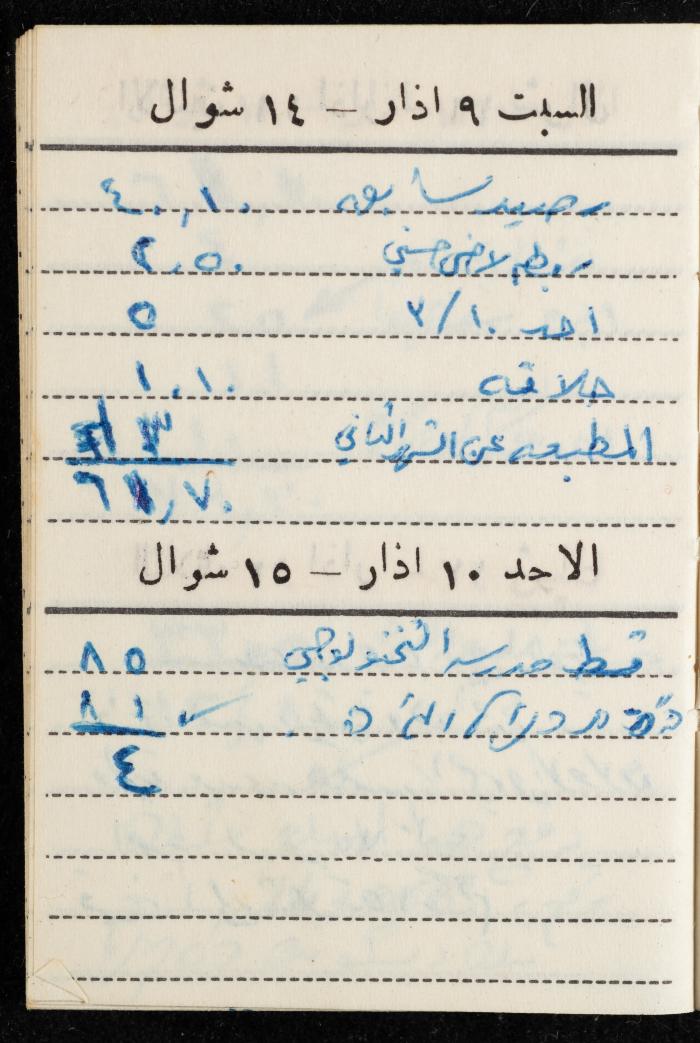 السبت ٩ اذار — ١٤ شوال
رصيد سابق ٤٠,١٠
٢,٥٠
احد ٣/١٠ ٥
حلاقه ١,١٠
المطبعه عن الشهر الثاني ١٣
٦١,٧٠
الاحد ١٠ اذار — ١٥ شوال
قسط مدرسه التخنولوجي ٨٥
٨١
٤